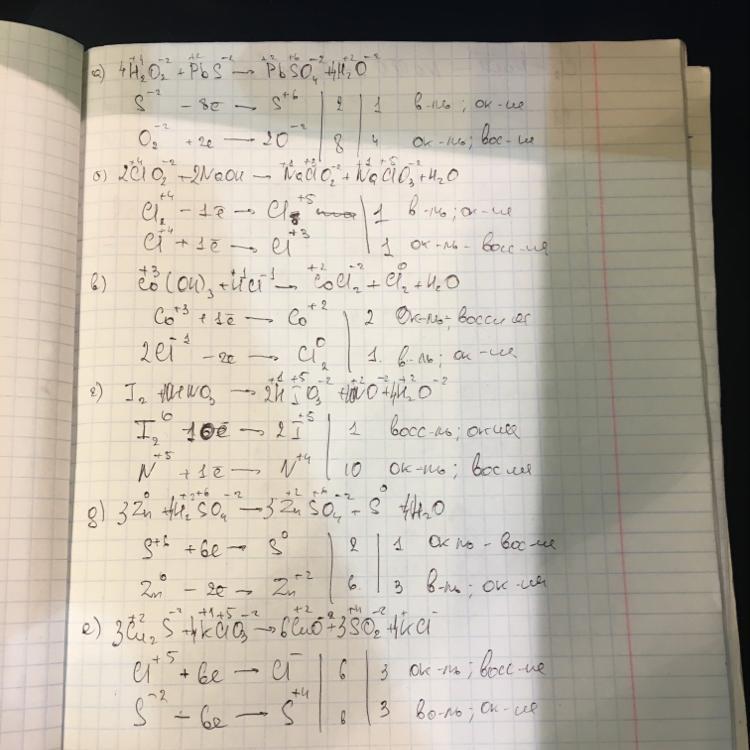 а) 4H₂⁺⁴O₂⁻² + Pb⁺²S⁻² → Pb⁺²S⁺⁶O₄⁻² + 4H₂⁺²O⁻²
S⁻² - 8e → S⁺⁶ | 2 | 1 в-ль; ок-ие
O₂⁻² + 2e → 2O⁻² | 8 | 4 ок-ль; вос-ие
б) 2Cl⁺⁴O₂⁻² + 2NaOH → Na⁺¹Cl⁺³O₂⁻² + Na⁺¹Cl⁺⁵O₃⁻² + H₂O
Cl⁺⁴ - 1e → Cl⁺⁵ | 1 в-ль; ок-ие
Cl⁺⁴ + 1e → Cl⁺³ | 1 ок-ль - восс-ие
в) Co⁺³(OH)₃ + H⁺¹Cl⁻¹ → Co⁺²Cl₂⁻² + Cl₂⁰ + H₂O
Co⁺³ + 1e → Co⁺² | 2 Ок-ль;
2Cl⁻¹ - 2e → Cl₂⁰ | 1 в-ль; ок-ие
г) I₂ + HNO₃ → 2H⁺¹I⁺⁵O₃⁻² + NO⁻² + 4H₂⁺²O⁻²
I₂⁰ 10e → 2I⁺⁵ | 1 восс-ль; ок-ие
N⁺⁵ + 1e → N⁺⁴ | 10 ок-ль; вос-ие
д) 3Zn⁰ + 4H₂⁺²S⁺⁶O₄⁻² → 3Zn⁺²S⁺⁶O₄⁻² + S⁰ 4H₂O
S⁺⁶ + 6e → S⁰ | 2 | 1 Ок-ль - вос-ие
Zn⁰ - 2e → Zn⁺² | 6 | 3 в-ль; ок-ия
е) 3Cu₂⁺²S⁻² + 4K⁺¹Cl⁺⁵O₃⁻² → 6Cu⁺²O⁻² + 3S⁺⁴O₂⁻² + 4K⁺Cl⁻
Cl⁺⁵ + 6e → Cl⁻ | 6 | 3 ок-ль; восс-ие
S⁻² - 6e → S⁺⁴ | 6 | 3 во-ль; ок-ие